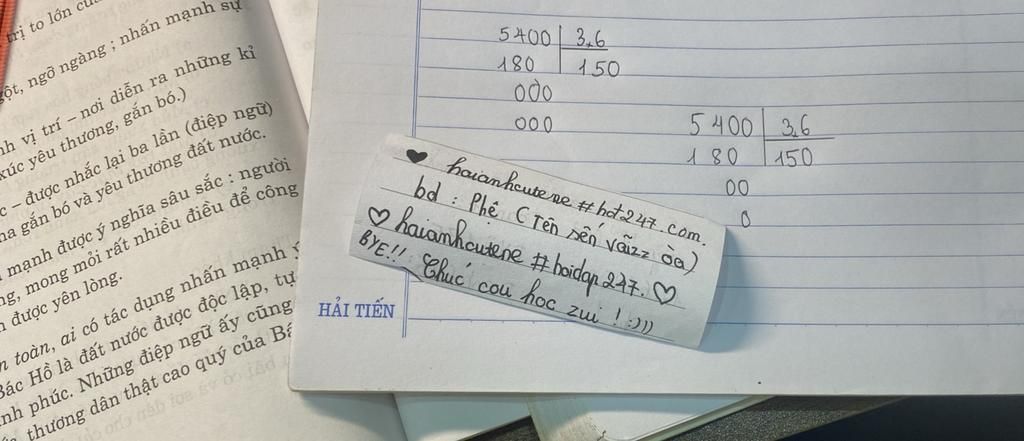 trị to lớn củ
gột, ngỡ ngàng ; nhấn mạnh sự
nh vị trí – nơi diễn ra những kỉ
xúc yêu thương, gắn bó.)
c – được nhắc lại ba lần (điệp ngữ)
na gắn bó và yêu thương đất nước.
mạnh được ý nghĩa sâu sắc : người
ng, mong mỏi rất nhiều điều để công
n được yên lòng.
n toàn, ai có tác dụng nhấn mạnh ý
Bác Hồ là đất nước được độc lập, tự
nh phúc. Những điệp ngữ ấy cũng
thương dân thật cao quý của Bá
5400 3,6
180 150
000
000
5 400 3,6
1 80 150
00
0
♥ haianhcutene #hot247.com.
bd : Phệ (Tên sến vãizz òa)
♡ haianhcutene #hoidap247. ♡
BYE!! Chúc cou học zui ! :)))
HẢI TIẾN